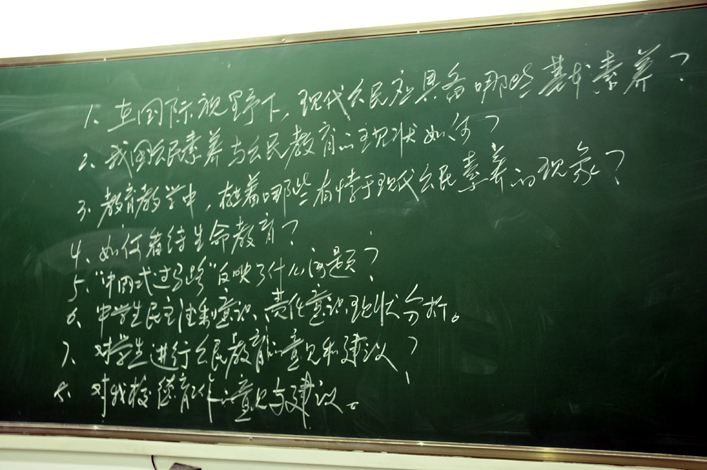 1、在国际视野下,现代公民应具备哪些基本素养?
2、我国公民素养与公民教育的现状如何?
3、教育教学中,存着哪些有悖于现代公民素养的现象?
4、如何看待生命教育?
5、"中国式过马路"反映了什么问题?
6、中学生民主法制意识、责任意识现状分析。
7、对学生进行公民教育的意见和建议?
8、对我校德育工作的意见与建议。